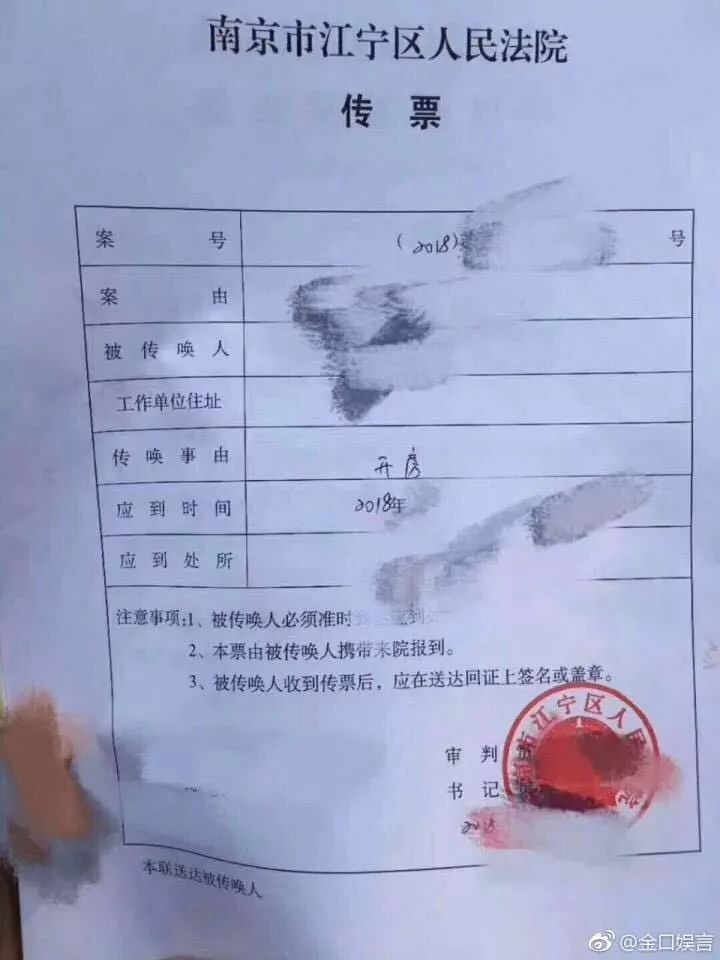 南京市江宁区人民法院
传票
案号 (2018) 号
案由
被传唤人
工作单位住址
传唤事由 开房
应到时间 2018年
应到处所
注意事项:1、被传唤人必须准时到达应到
2、本票由被传唤人携带来院报到。
3、被传唤人收到传票后，应在送达回证上签名或盖章。
市江宁区人民
审判
书记
2018
本联送达被传唤人
@金口娱言